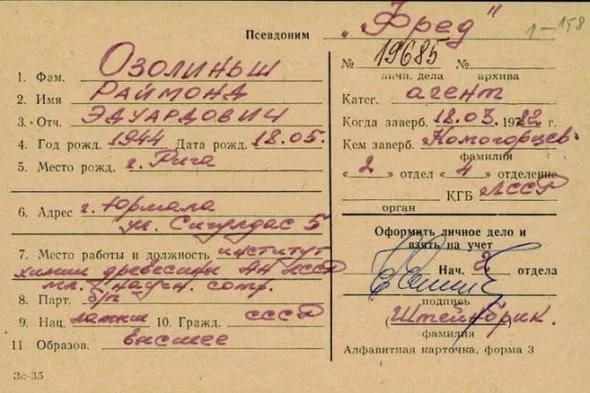 Псевдоним „Фред" 1-158
№ 19685 №
личн. дела архива
1. Фам. Озолиньш
2. Имя Раймонд
3. Отч. Эдуардович
4. Год рожд. 1944 Дата рожд. 18.05.
5. Место рожд. г. Рига
6. Адрес г. Юрмала
ул. Сигулдас 5
7. Место работы и должность институт
химии древесины АН ЛССР
мл. науч. сотр.
8. Парт. б/п
9. Нац. латыш 10. Гражд. СССР
11 Образов. высшее
3с-35
Катег. агент
Когда заверб. 18.03. 1982 г.
Кем заверб. Комогорцев
фамилия
« 2 » отдел « 4 » отделение
КГБ ЛССР
орган
Оформить личное дело и
взять на учет
Нач. 2 отдела
подпись
(Штейнбрик.
фамилия
Алфавитная карточка, форма 3